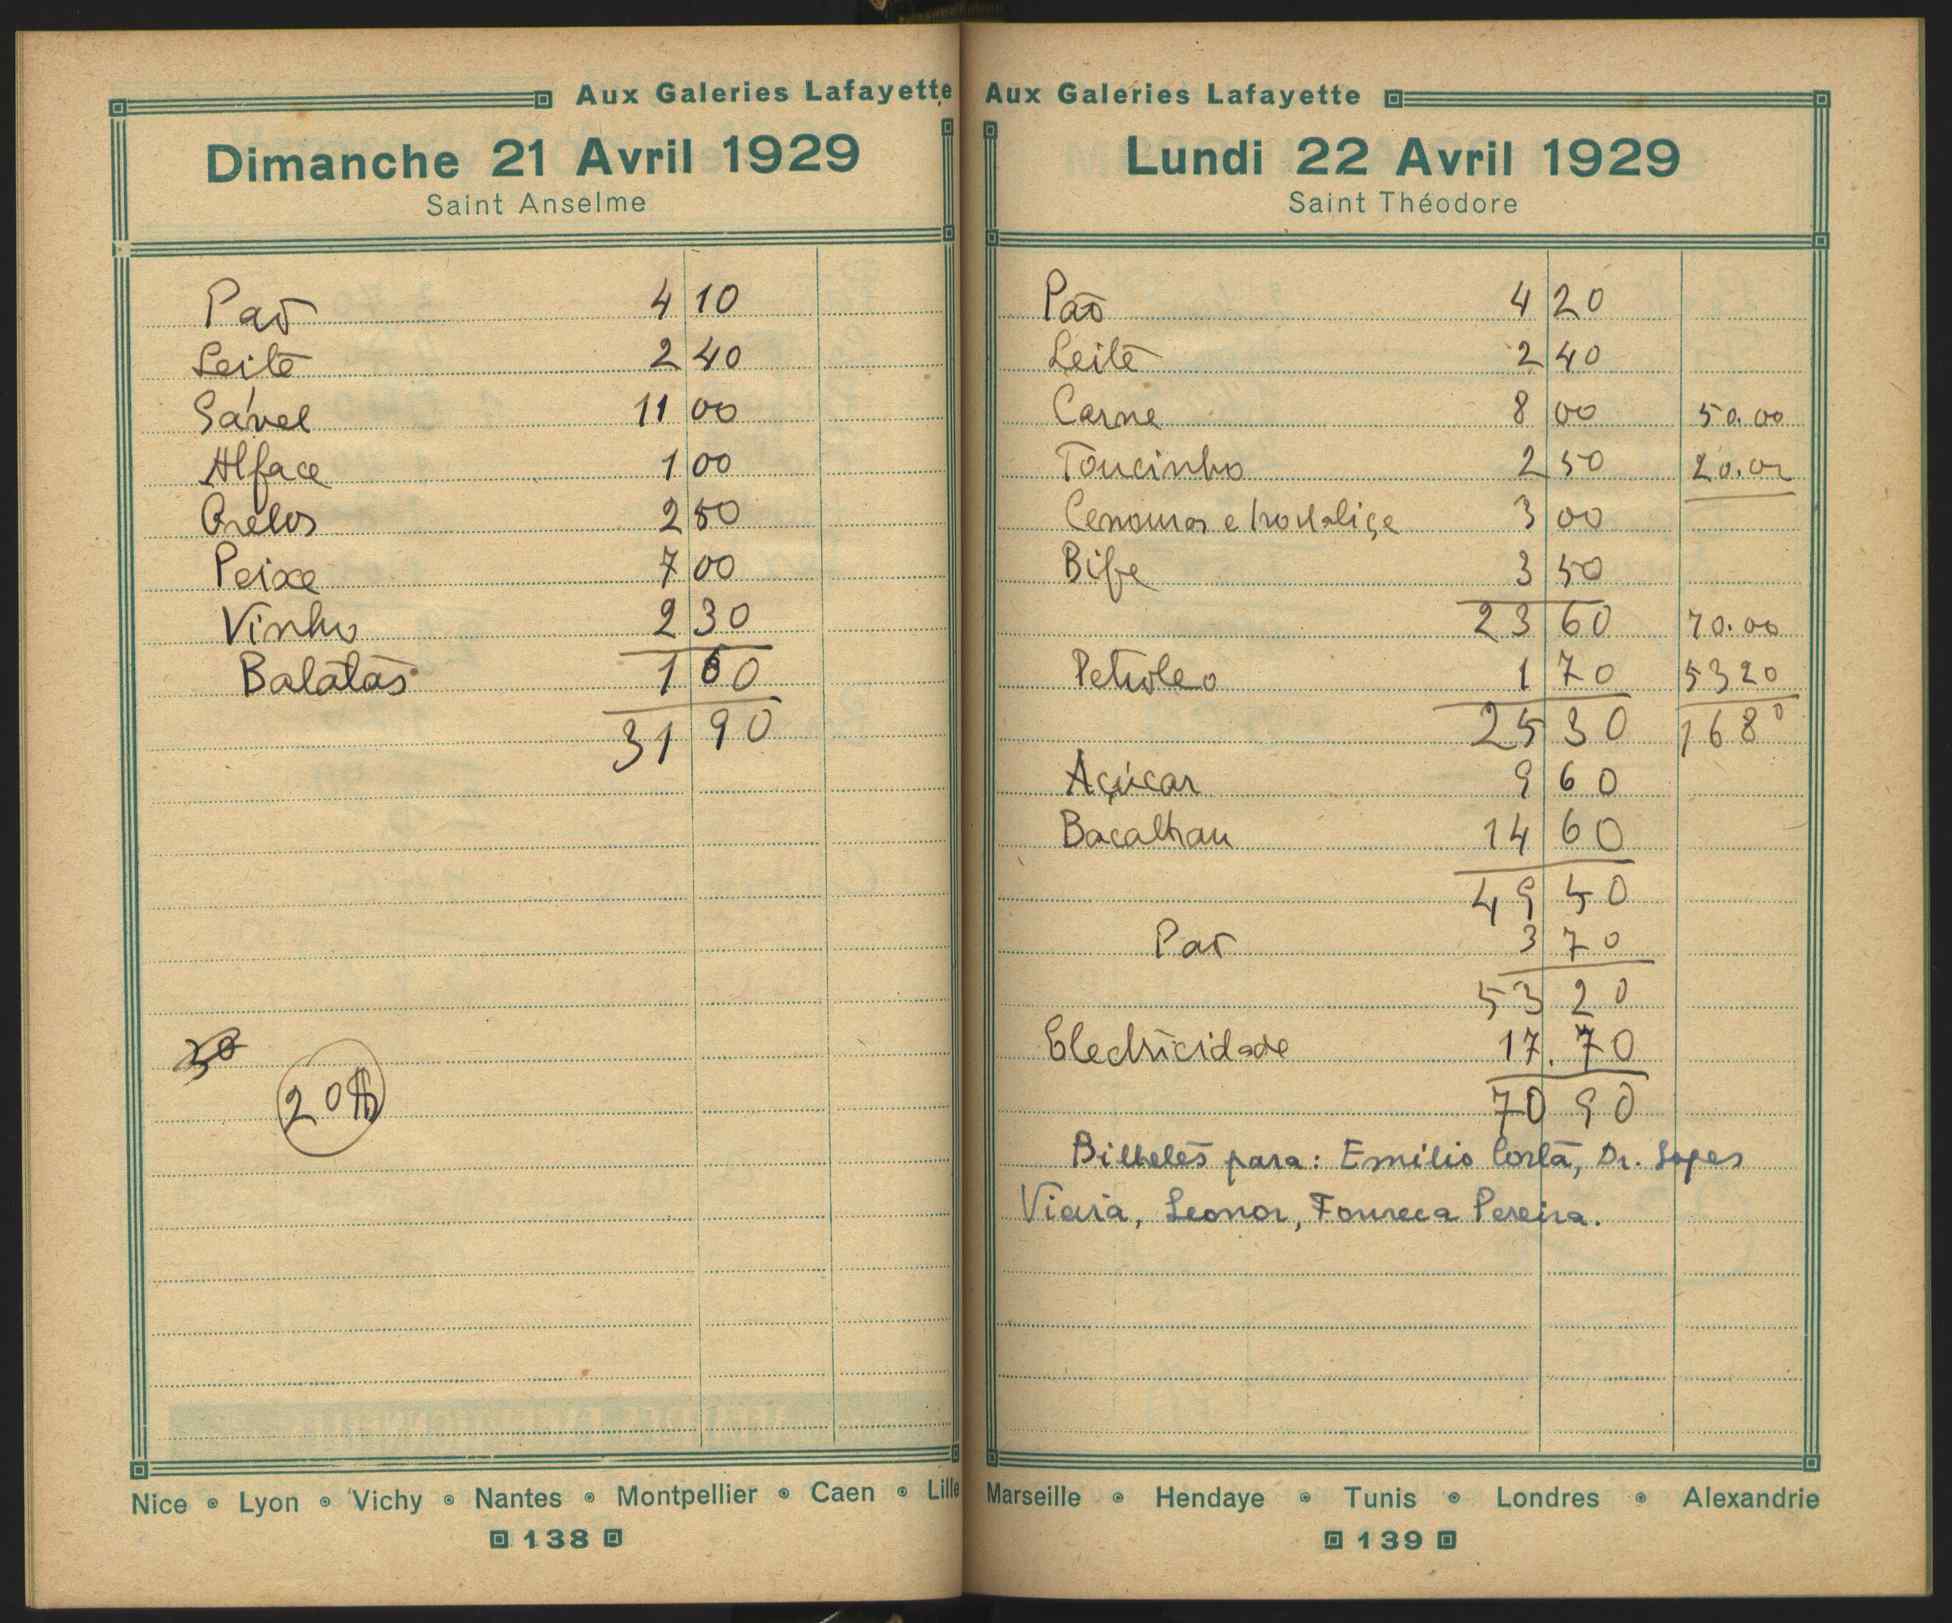 Aux Galeries Lafayette
Dimanche 21 Avril 1929
Saint Anselme
Pão 4 10
Leite 2 40
Sável 11 00
Alface 1 00
Grelos 2 50
Peixe 7 00
Vinho 2 30
Batatas 1 60
31 90
20
20$
Nice Lyon Vichy Nantes Montpellier Caen Lille
138
Aux Galeries Lafayette
Lundi 22 Avril 1929
Saint Théodore
Pão 4 20
Leite 2 40
Carne 8 00 50.00
Toucinho 2 50 20.00
Cenouras e hortaliça 3 00
Bife 3 50
23 60 70.00
Petroleo 1 70 5320
25 30 1680
Açúcar 9 60
Bacalhau 14 60
49 50
Pão 3 70
53 20
Electricidade 17.70
70 90
Bilhetes para: Emilio Costa, Dr. Lopes
Vieira, Leonor, Fonseca Pereira.
Marseille Hendaye Tunis Londres Alexandrie
139